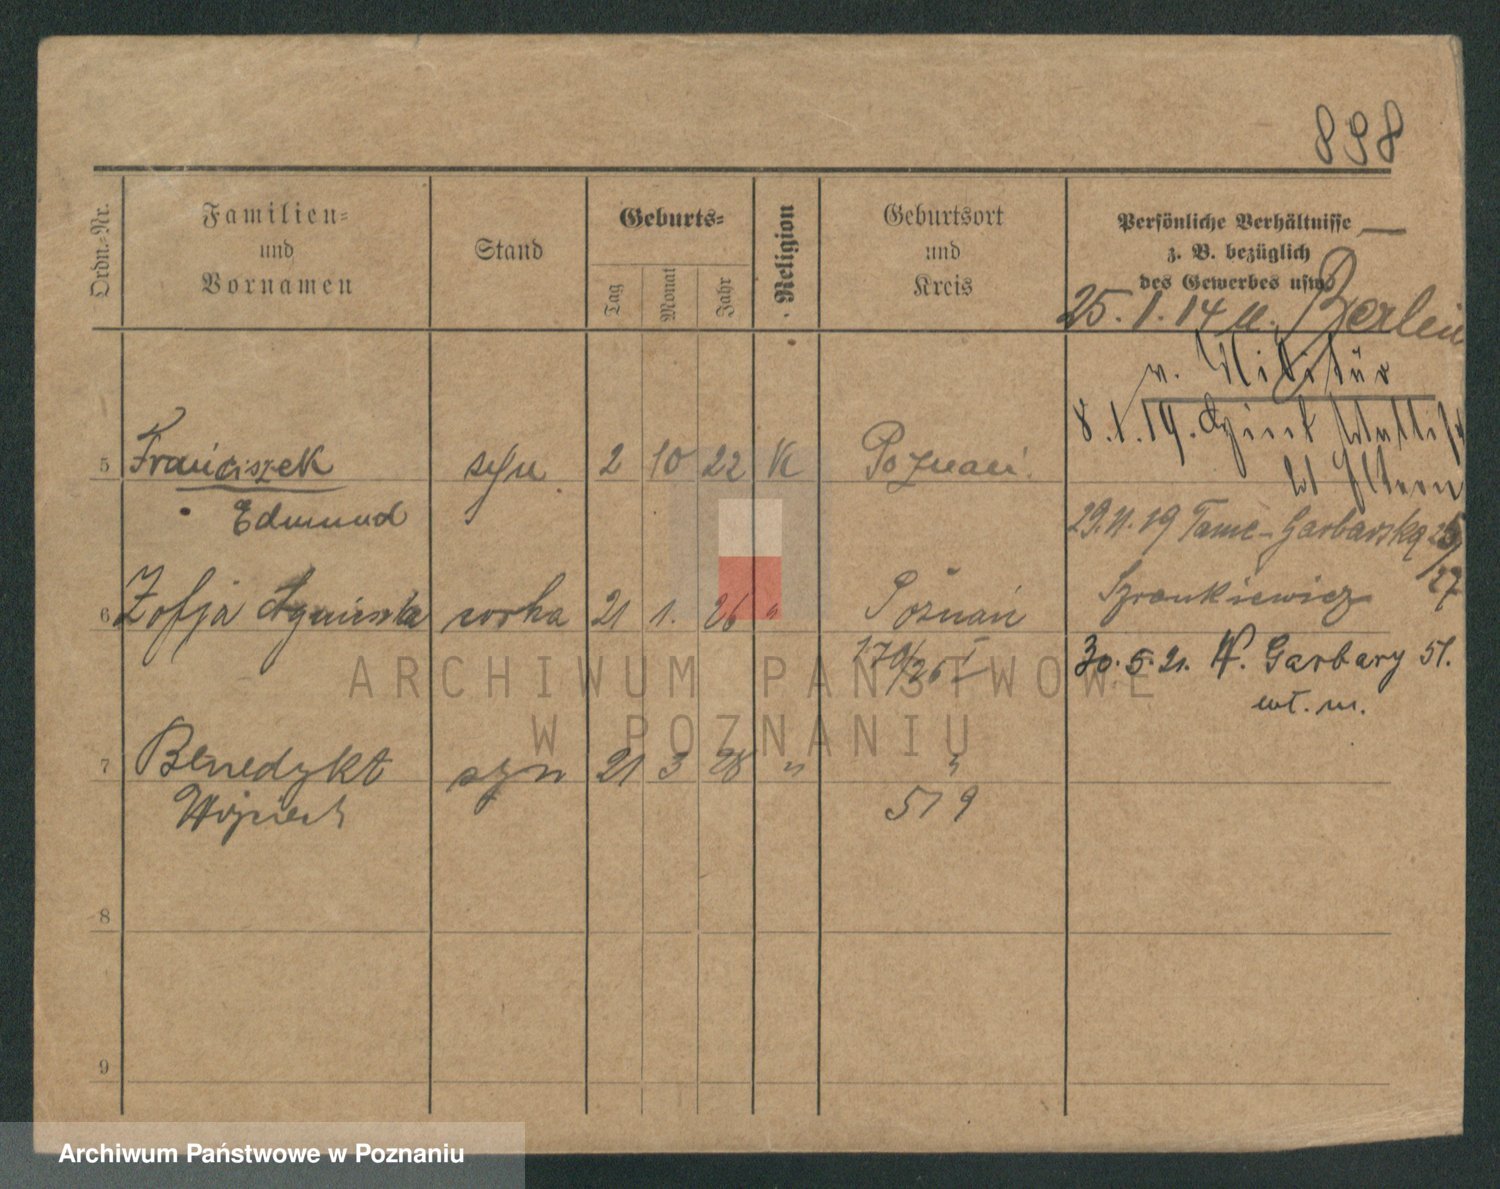 898
Ordn.-Nr.
Familien-
und
Vornamen
Stand
Geburts-
Tag
Monat
Jahr
Religion
Geburtsort
und
Kreis
Persönliche Verhältnisse
z. B. bezüglich
des Gewerbes usw.
25. 1. 14 u. Berlin
v. Militär
8. 1. 19.
bei Eltern
5 Franciszek syn 2 10 22 K Poznań.
Edmund
29. 11. 19 Tame-Garbarska 25/27
Szrankiewicz
6 Zofja Agnieszka córka 21 1. 26 " Poznań
170/26 I
30. 5. 21. W. Garbary 51.
wł. m.
ARCHIWUM PAŃSTWOWE
W POZNANIU
7 Benedykt syn 21 3 28 " "
Wojciech 519
8
9
Archiwum Państwowe w Poznaniu